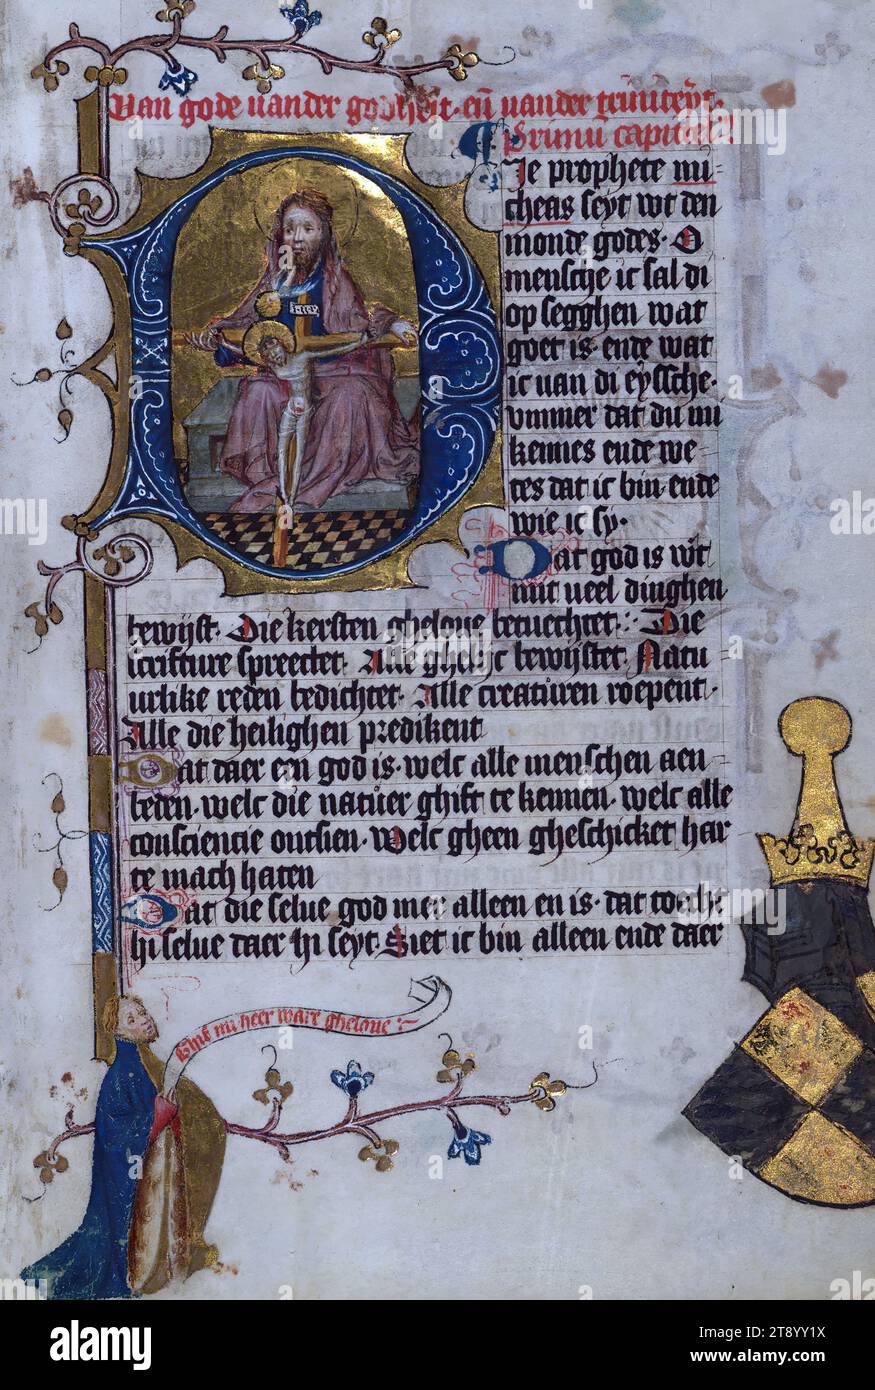 Van gode vander godheit. en̄ vander triniteyt.
Primū capitel.
Je prophete mi-
cheas seyt wt den
monde godes. O
mensche ic sal di
op segghen wat
goet is. ende wat
ic van di eyssche.
vmmer dat du mi
kennes ende we-
tes dat ic bin. ende
wie ic sy.
Dat god is wt
mit veel dinghen
bewijst. Die kersten ghelove betuechtet. Die
scrifture spreectet. Alle ghelijc bewijstet. Natu-
urlike reden bedichtet. Alle creatůren roepent.
Alle die heilighen predikent
Dat daer een god is. welc alle menschen aen
beden. welc die natůer ghift te kennen. welc alle
consciencie ontsien. Welc gheen gheschicket har
te mach haten
Dat die selue god mer alleen en is. dat tocht
hi selue daer hi seyt. Siet ic bin alleen ende daer
mi heer ware ghelove
alamy
Image ID: 2T8YY1X
www.alamy.com